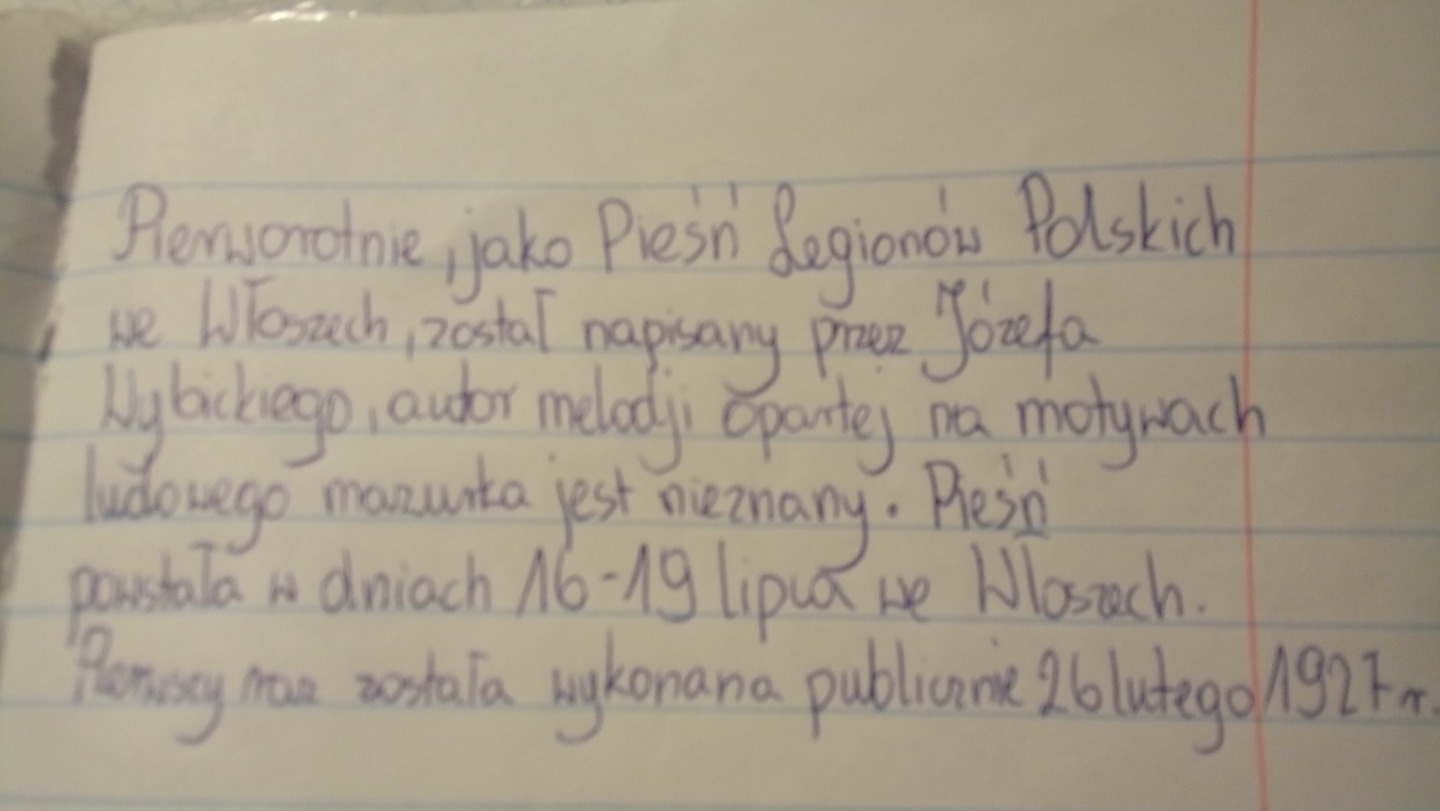 Pierworotnie, jako Pieśń Legionów Polskich
we Włoszech, został napisany przez Józefa
Wybickiego, autor melodji opartej na motywach
ludowego mazurka jest nieznany. Pieśń
powstała w dniach 16-19 lipca we Wloszech.
Pierwszy raz została wykonana publicznie 26 lutego 1927 r.